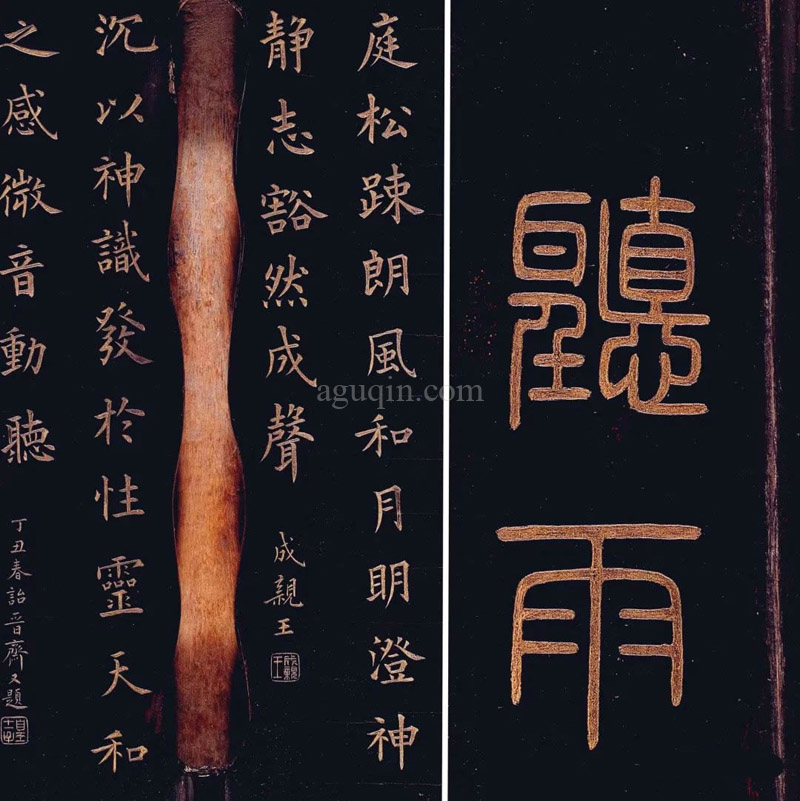 聽雨
庭松踈朗風和月眀澄神
静志豁然成聲
成親王
成親王
沉以神識發於性靈天和
之感微音動聽
丁丑春詒晉齋又題
aguqin.com